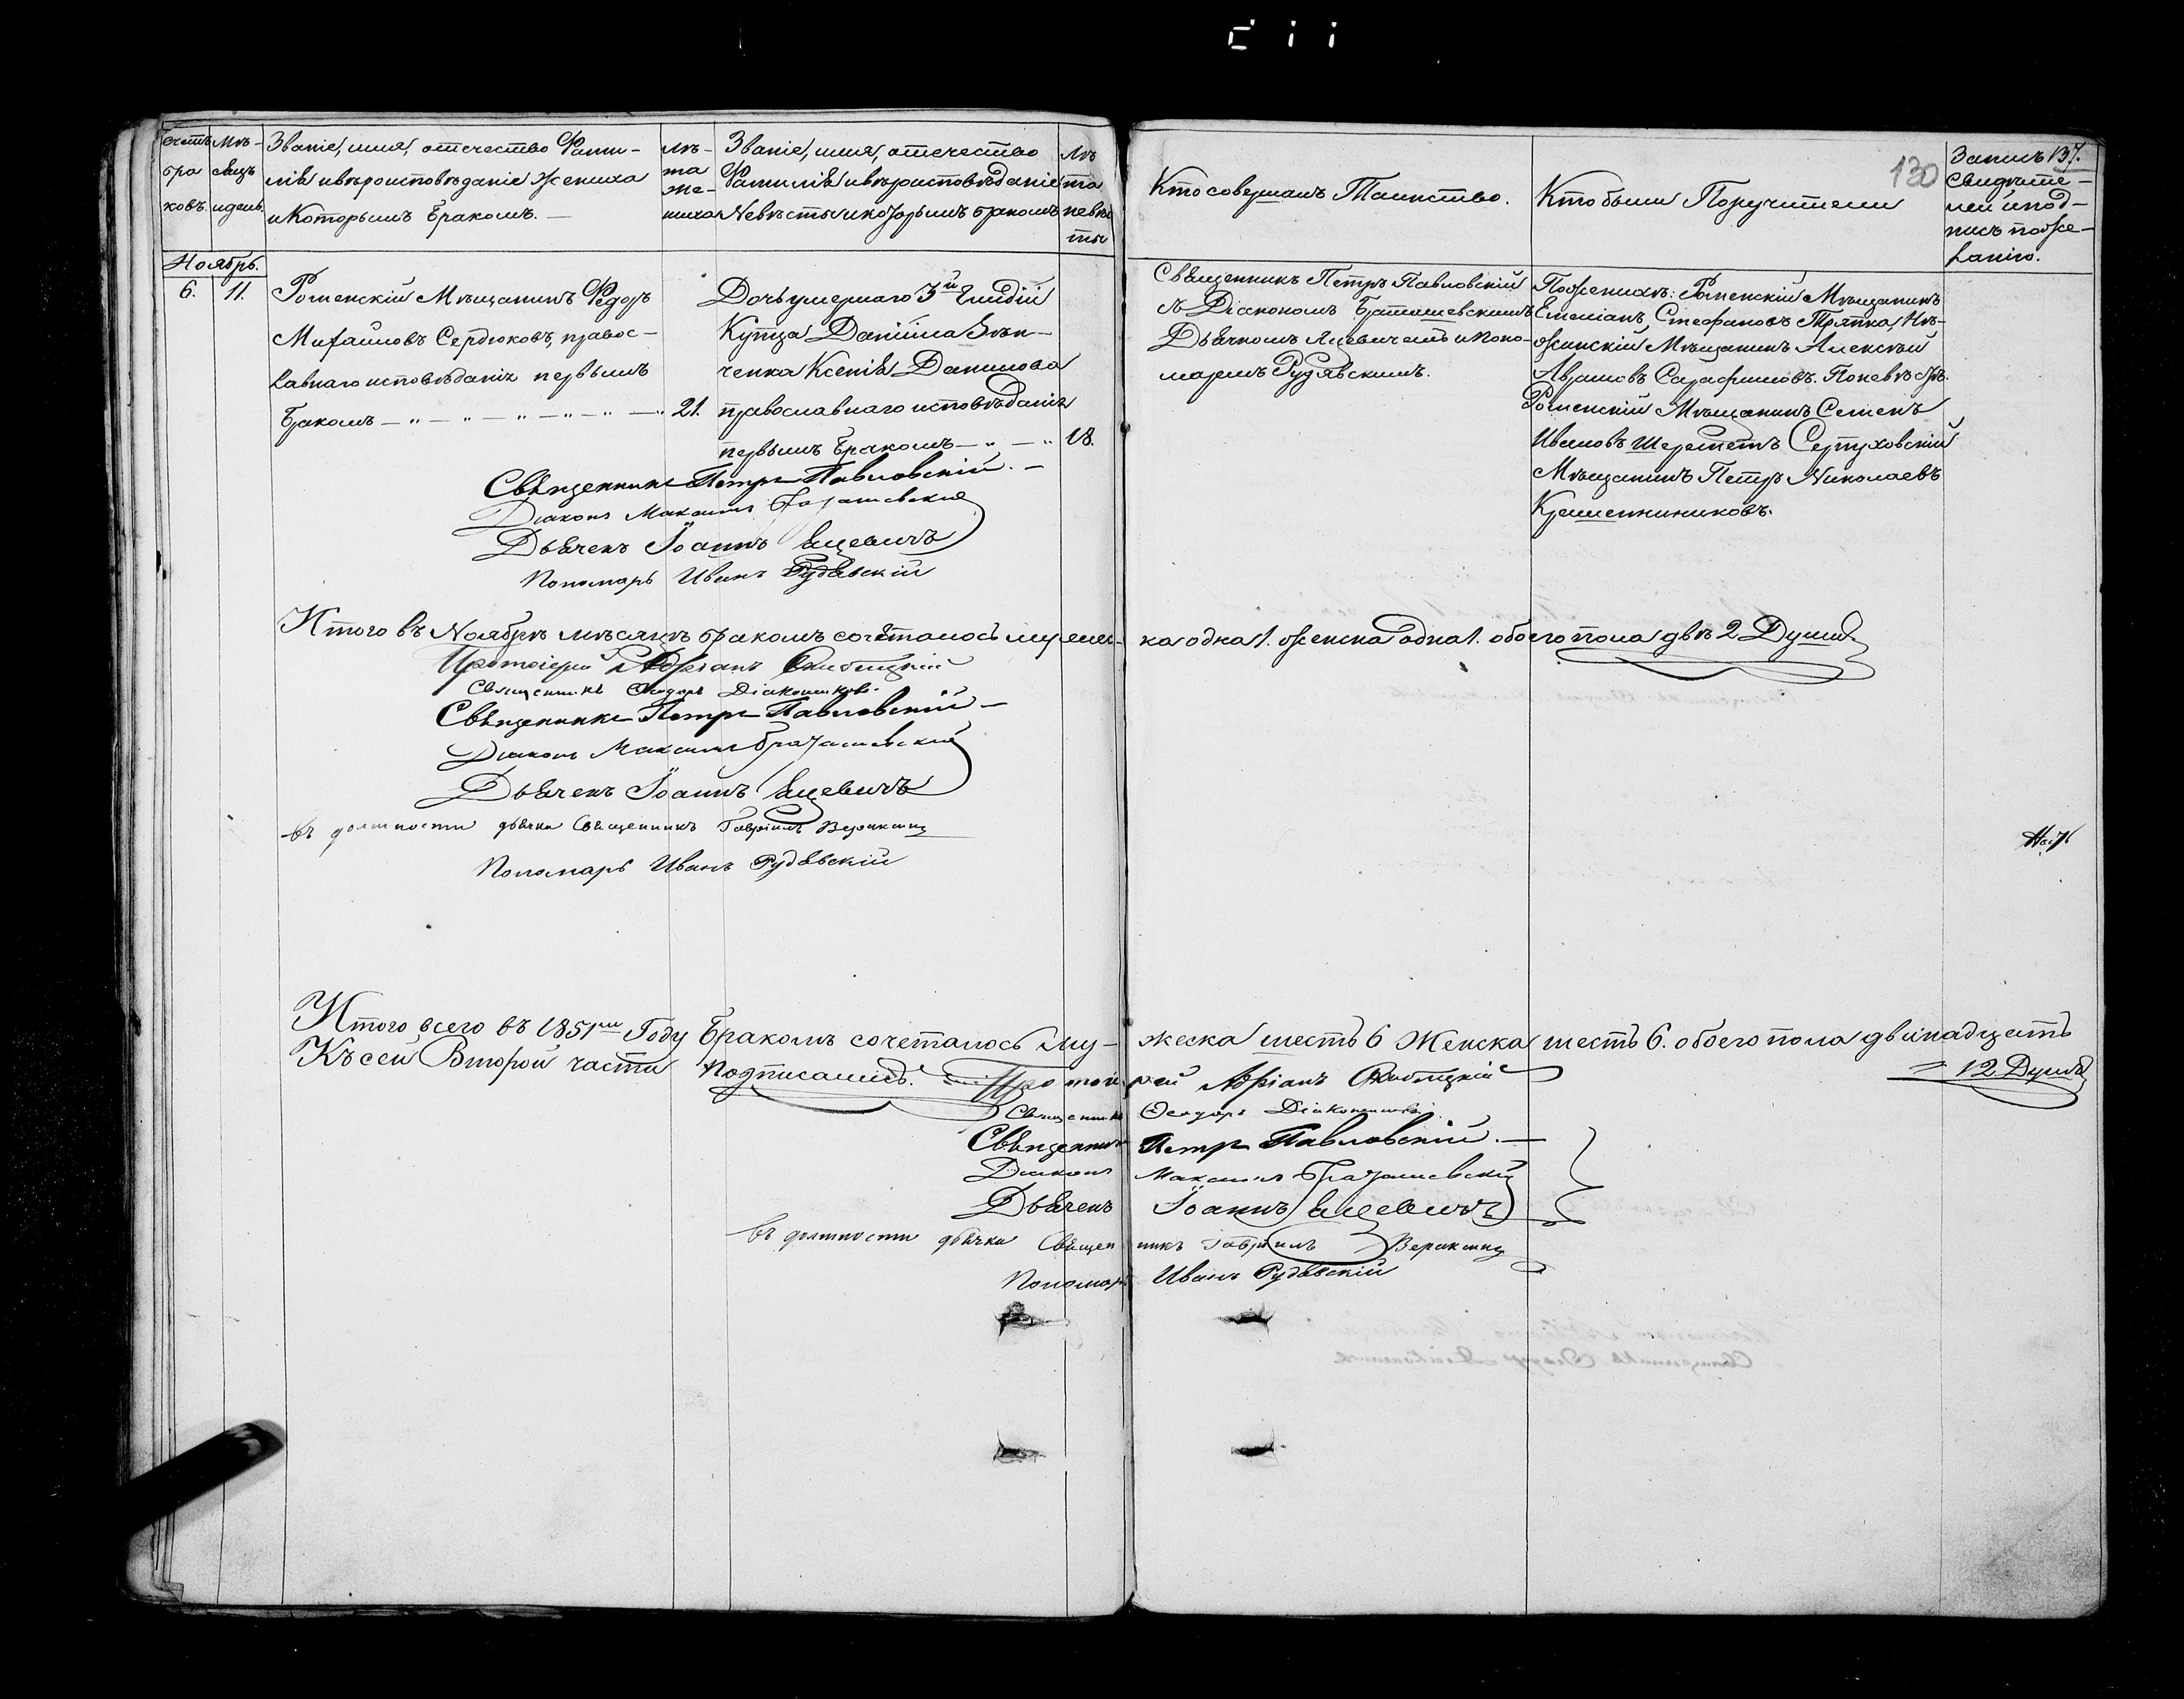 Счетъ
бра
ковъ.
Мѣ-
сяцъ
и день.
Званіе, имя, отечество Фами-
лія и вѣроисповѣданіе Жениха
и Которымъ Бракомъ. —
лѣ-
та
же-
ниха
Званіе, имя, отечество
Фамилія и вѣроисповѣданіе
Невѣсты и которымъ бракомъ
Лѣ
та
невѣс
ты
Кто совершалъ Таинство.
Кто были Поручители
130
Запись 137.
Свидѣте-
лей и под-
пись по же-
ланію.
Ноябрь.
6.
11.
Роменскій Мѣщанинъ Ѳедоръ
Михайловъ Сердюковъ, правос-
лавнаго исповѣданія первымъ
Бракомъ — „ — „ — „ — „ — „ — „
21.
Дочь умершаго 3й Гильдіи
Купца Даніила Зѣн-
ченка Ксенія Данилова
православнаго исповѣданія
первымъ Бракомъ — „ — „
18.
Священникъ Петръ Павловскій
съ Діакономъ Браташевскимъ
Дьячкомъ Яцевичемъ и Поно-
маремъ Рудявскимъ.
По женихѣ: Роменскій Мѣщанинъ
Емеліанъ Стефановъ Тряпка, Нѣ-
жинскій Мѣщанинъ Алексѣй
Аврамовъ Сарафимовъ. По невѣстѣ:
Роменскій Мѣщанинъ Семенъ
Ивановъ Шереметъ Серпуховскій
Мѣщанинъ Петръ Николаевъ
Крашенниниковъ.
Священникъ Петръ Павловскій. —
Діаконъ Максимъ Браташевскій
Дьячекъ Іоаннъ Яцевичъ
Пономарь Иванъ Рудявскій
Итого въ Ноябрѣ мѣсяцѣ бракомъ сочеталось мужес- ка одна 1. женска одна 1. обоего пола двѣ 2 Души.
Протоіерей Адріанъ Скабицкій
Священникъ Ѳеодоръ Діаконенковъ.
Священникъ Петръ Павловскій —
Діаконъ Максимъ Браташевскій
Дьячекъ Іоаннъ Яцевичъ
въ должности дьячка Священникъ Гавріилъ
Пономарь Иванъ Рудявскій
Итого всего въ 1851мъ Году Бракомъ сочеталось му- жеска шесть 6 Женска шесть 6. обоего пола двѣнадцать
= 12 Душъ
Къ сей Второй части подписались. Протоіерей Адріанъ Скабицкій
Священникъ Ѳеодоръ Діаконенковъ
Священникъ Петръ Павловскій. —
Діаконъ Максимъ Браташевскій
Дьячекъ Іоаннъ Яцевичъ
въ должности дьячка Священникъ Гавріилъ
Пономарь Иванъ Рудявскій